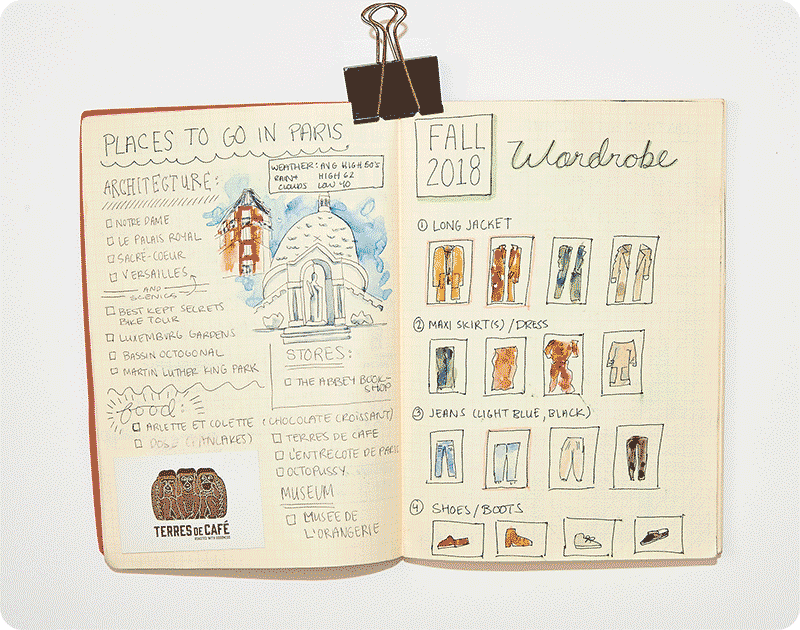 PLACES TO GO IN PARIS
WEATHER: AVG HIGH 50's
RAIN+ HIGH 62
CLOUDS LOW 40
ARCHITECTURE:
NOTRE DAME
LE PALAIS ROYAL
SACRE-COEUR
VERSAILLES
AND
SCENICS
BEST KEPT SECRETS
BIKE TOUR
LUXEMBURG GARDENS
BASSIN OCTOGONAL
MARTIN LUTHER KING PARK
STORES:
THE ABBEY BOOK-
SHOP
food:
ARLETTE ET COLETTE (CHOCOLATE CROISSANT)
DOSE (PANCAKES)
TERRES DE CAFE
L'ENTRECOTE DE PARIS
OCTOPUSSY
MUSEUM
MUSEE DE
L'ORANGERIE
TERRES DE CAFÉ
ROASTED WITH GOODNESS
FALL
2018
Wardrobe
1 LONG JACKET
2 MAXI SKIRT(S)/DRESS
3 JEANS (LIGHT BLUE, BLACK)
4 SHOES/BOOTS